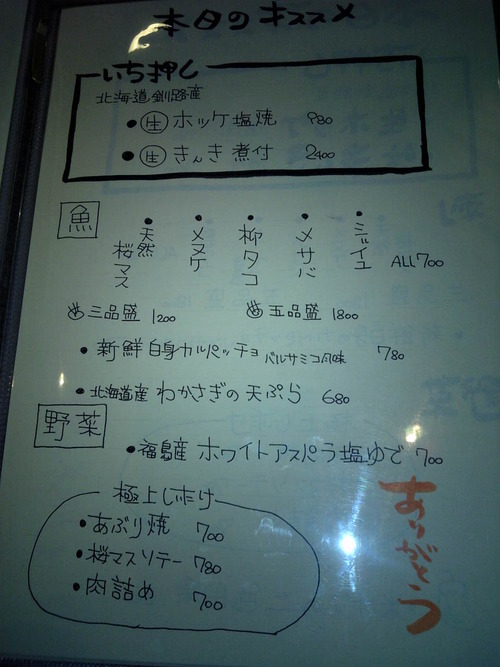 本日のオススメ
いち押し
北海道釧路産
• 生 ホッケ塩焼 980
• 生 きんき煮付 2400
魚
• 天然桜マス
• メヌケ
• 柳タコ
• メサバ
ALL700
三品盛 1200
五品盛 1800
• 新鮮白身カルパッチョ バルサミコ風味 780
• 北海道産 わかさぎの天ぷら 680
野菜
• 福島産 ホワイトアスパラ塩ゆで 700
極上しいたけ
• あぶり焼 700
• 桜マスソテー 780
• 肉詰め 700
ありがとう